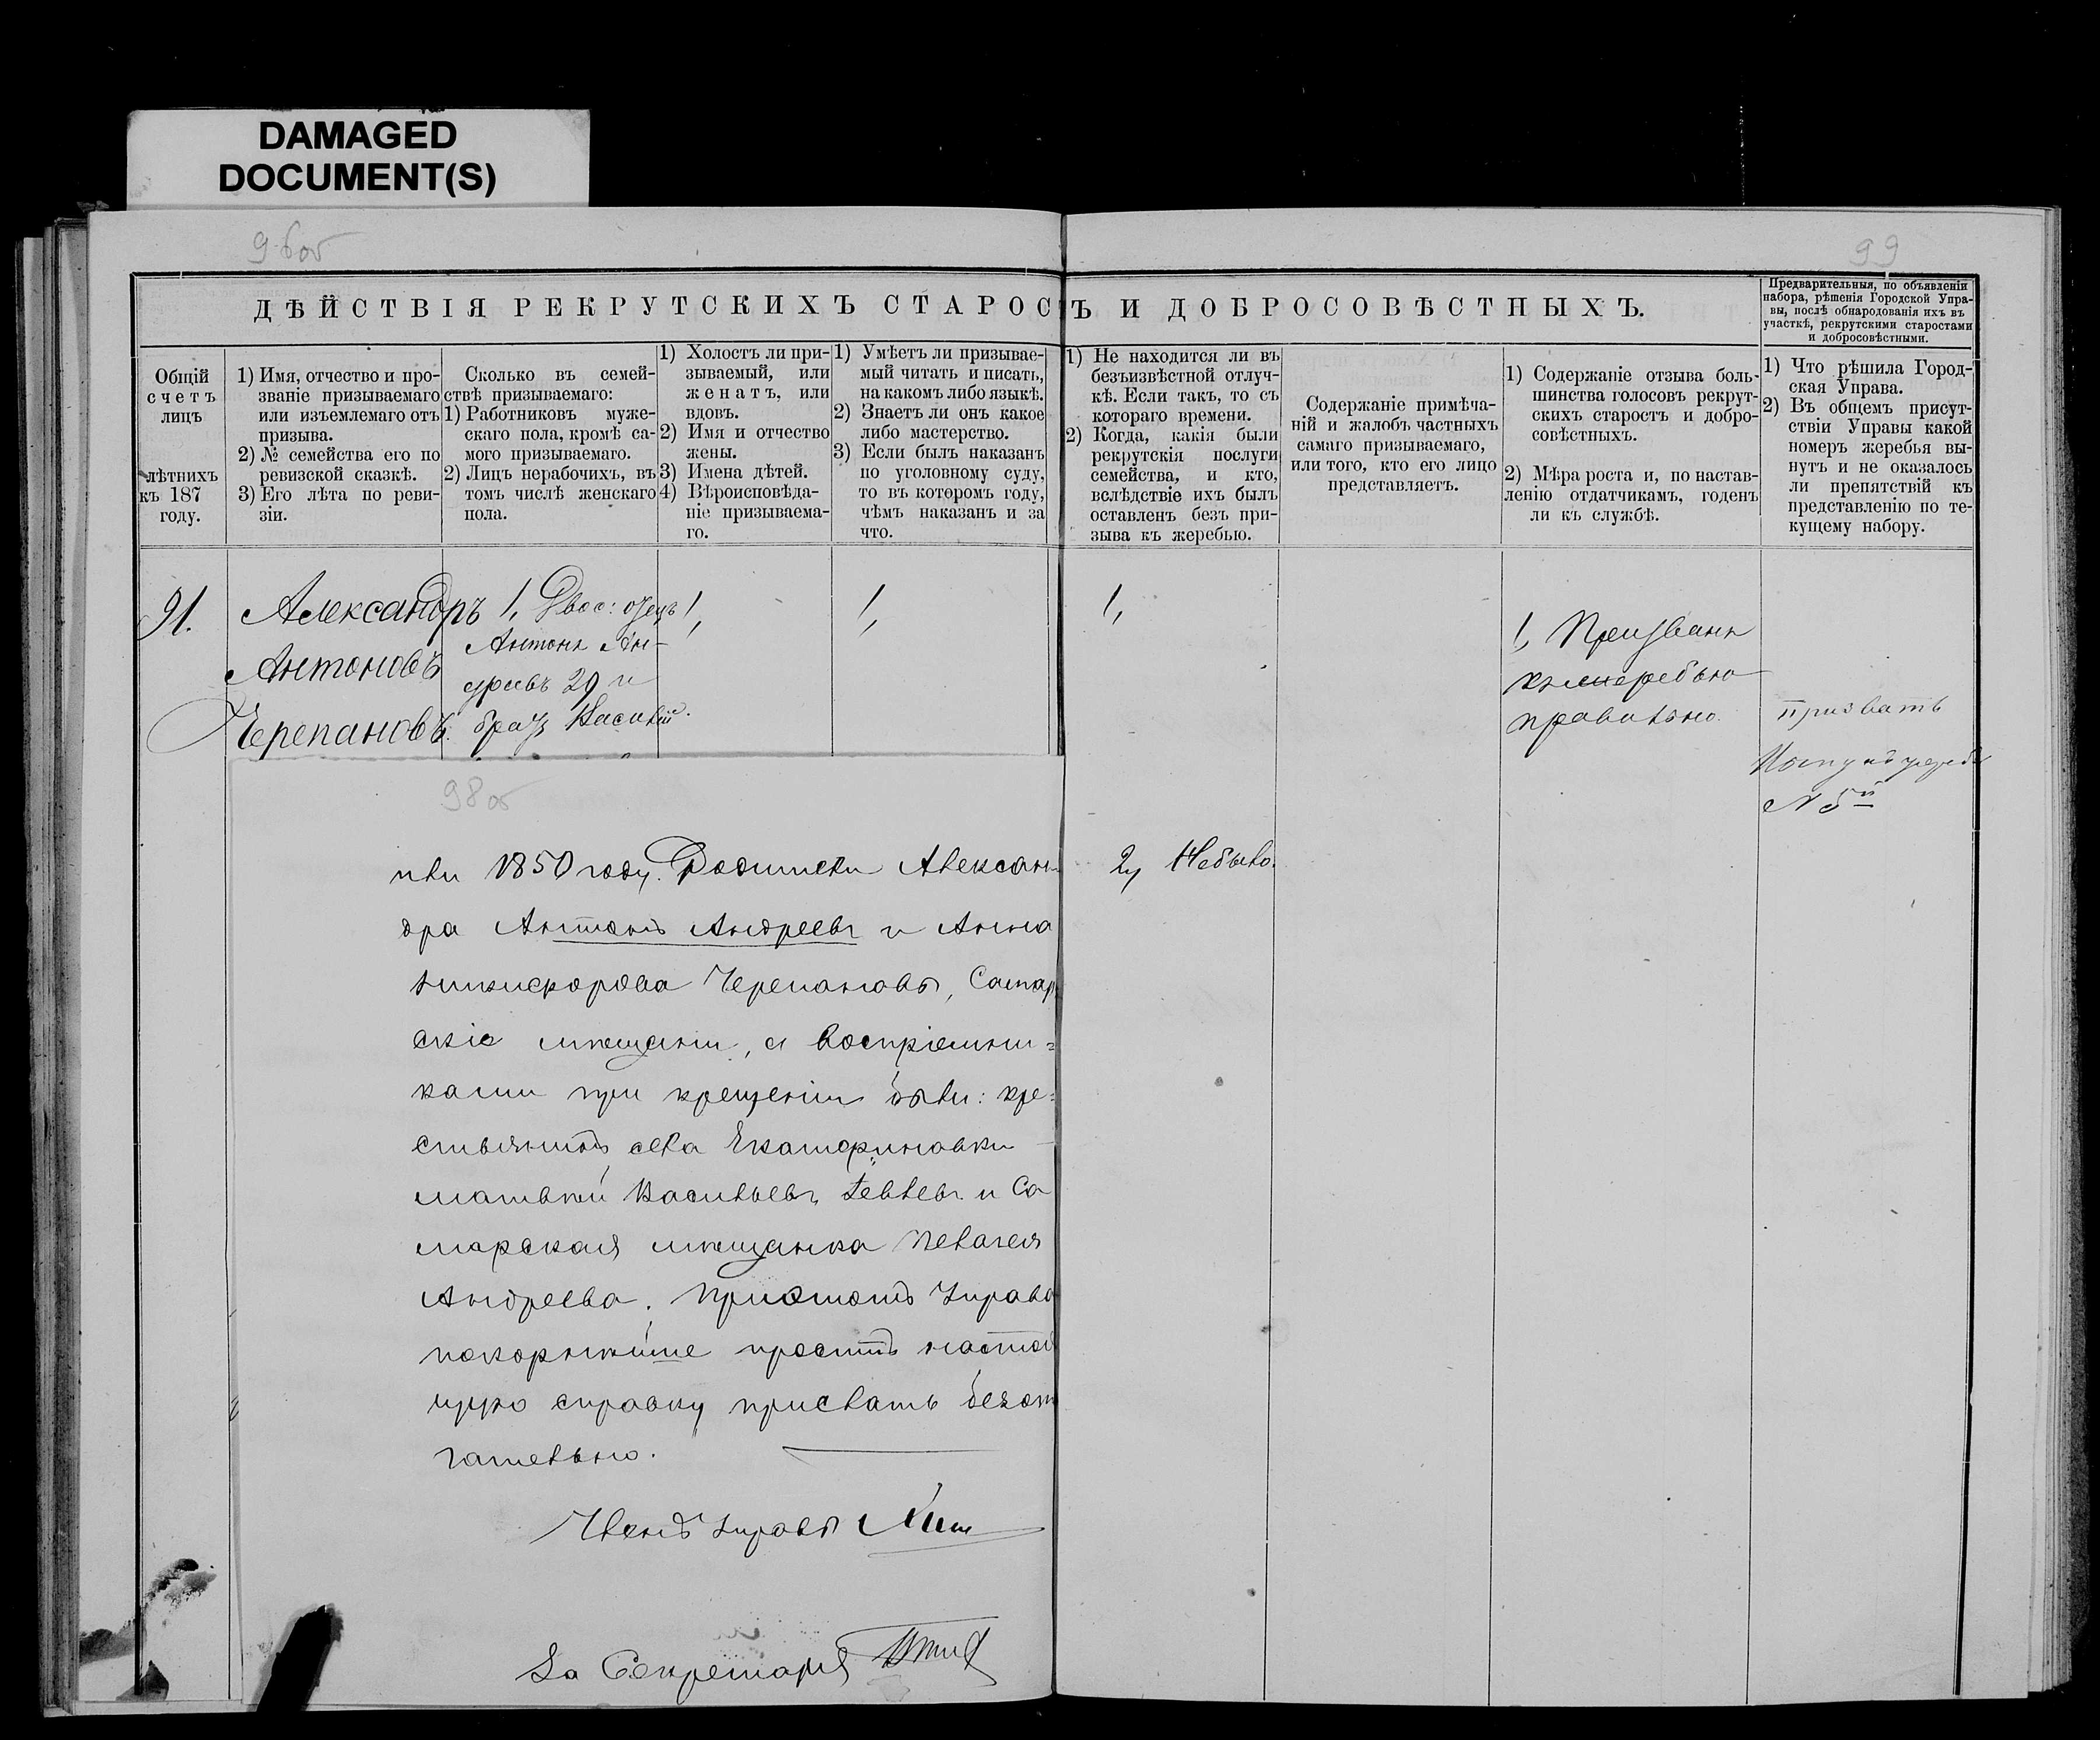 DAMAGED
DOCUMENT(S)
99
ДѢЙСТВІЯ РЕКРУТСКИХЪ СТАРОС Ъ И ДОБРОСОВѢСТНЫХЪ.
Предварительныя, по объявленіи
набора, рѣшенія Городской Упра-
вы, послѣ обнародованія ихъ въ
участкѣ, рекрутскими старостами
и добросовѣстными.
Общій
счетъ
лицъ
лѣтнихъ
къ 187
году.
1) Имя, отчество и про-
званіе призываемаго
или изъемлемаго отъ
призыва.
2) № семейства его по
ревизской сказкѣ.
3) Его лѣта по реви-
зіи.
Сколько въ семей-
ствѣ призываемаго:
1) Работниковъ муже-
скаго пола, кромѣ са-
мого призываемаго.
2) Лицъ нерабочихъ, въ
томъ числѣ женскаго
пола.
1) Холостъ ли при-
зываемый, или
женатъ, или
вдовъ.
2) Имя и отчество
жены.
3) Имена дѣтей.
4) Вѣроисповѣда-
ніе призываема-
го.
1) Умѣетъ ли призывае-
мый читать и писать,
на какомъ либо языкѣ.
2) Знаетъ ли онъ какое
либо мастерство.
3) Если былъ наказанъ
по уголовному суду,
то въ которомъ году,
чѣмъ наказанъ и за
что.
1) Не находится ли въ
безъизвѣстной отлуч-
кѣ. Если такъ, то съ
котораго времени.
2) Когда, какія были
рекрутскія послуги
семейства, и кто,
вслѣдствіе ихъ былъ
оставленъ безъ при-
зыва къ жеребью.
Содержаніе примѣча-
ній и жалобъ частныхъ
самаго призываемаго,
или того, кто его лицо
представляетъ.
1) Содержаніе отзыва боль-
шинства голосовъ рекрут-
скихъ старостъ и добро-
совѣстныхъ.
2) Мѣра роста и, по настав-
ленію отдатчикамъ, годенъ
ли къ службѣ.
1) Что рѣшила Город-
ская Управа.
2) Въ общемъ присут-
ствіи Управы какой
номеръ жеребья вы-
нутъ и не оказалось
ли препятствій къ
представленію по те-
кущему набору.
91.
Александръ
Антоновъ
Черепановъ.
1, Двое: отецъ
Антонъ Ан-
дреевъ 29 и
братъ Василій.
1,
1,
1,
2, Небыло.
1, Призванъ
къ жеребью
правильно.
призвать
98об
1850 году. Родители Алексан
дра Антонъ Андреевъ и Анна
Никифорова Черепановы, Самар
скіе мѣщани, а воспріемни=
ками при крещеніи были: кре=
стьянинъ села Екатериновки
Матвѣй Васильевъ и Са
марская мѣщанка Пелагея
Андреева. Управа
покорнѣйше проситъ настоя
щую справку прислать безот
гательно.
Членъ Управы
За Секретаря